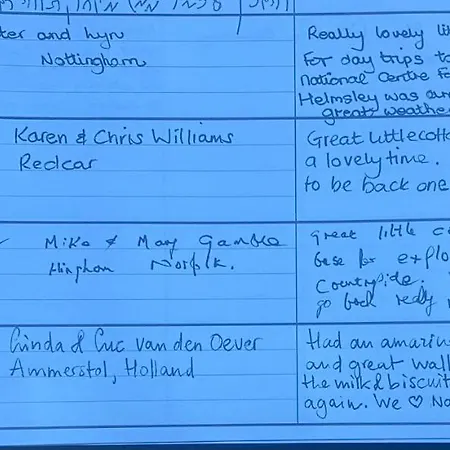 ter and Lyn
Nottingham
Really lovely li
for day trips to
National Centre f
Helmsley was
great weathe
Karen & Chris Williams
Redcar
Great little cott
a lovely time.
to be back one
Mike & Mary Gamble
Hingham Norfolk.
great little c
base for explo
Countryside.
go back really
Linda & Luc van den Oever
Ammerstol, Holland
Had an amazin
and great wal
the milk & biscuit
again. We ♡ No